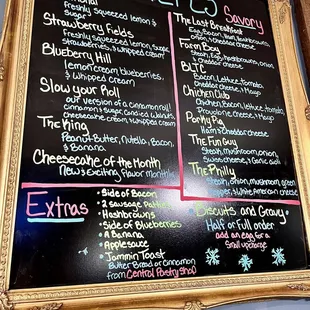 Freshly squeezed lemon &
Sugar
Strawberry Fields
Freshly squeezed lemon, sugar
strawberries, & whipped cream
Blueberry Hill
Lemon cream, blueberries,
& whipped cream
Slow your Roll
our version of a cinnamon roll!
Cinnamon & sugar, candied walnuts,
cheesecake cream, whipped cream
The King
Peanut-Butter, Nutella, Bacon,
& Banana
Cheesecake of the Month
New & exciting flavor monthly
Savory
The Last Breakfast
Egg, Bacon, Ham, Hashbrowns
onion, & cheddar cheese
Farm Boy
Steak, Eggs, hashbrowns,
onion, & cheddar cheese
BLTC
Bacon, lettuce, tomato,
Cheddar cheese & Mayo
Chicken Club
Chicken, bacon, lettuce, tomato,
Provolone cheese & Mayo
Porky Pig
Ham & cheddar cheese
The Fun Guy
Steak, mushroom, onion,
Swiss cheese, & Garlic aioli
The Philly
Steak, onion, mushroom, green
pepper, & White American cheese
Extras
• Side of Bacon
• 2 Sausage Patties
• Hashbrowns
• Side of Blueberries
• A Banana
• Applesauce
• Jammin Toast
Butter Bread or Cinnamon
from Central Pastry Shop
• Biscuits and Gravy •
Half or Full order
add an egg for a
Small upcharge